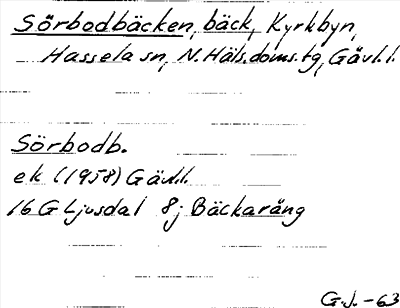 Sörbodbäcken, bäck, Kyrkbyn,
Hassela sn, N. Häls. doms. tg, Gävl. l.
Sörbodb.
ek (1958) Gävl.l.
16 G Ljusdal 8j Bäckaräng
G.J.-63